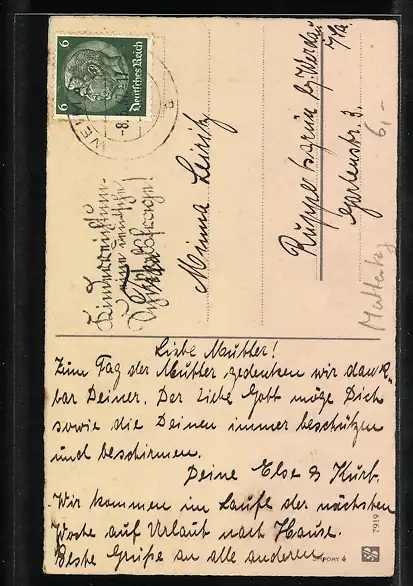 6 6
Deutsches Reich
-8.
Minna Leiritz
Ruppertsgrün bz. Werdau
Gartenstr. 3.
6,-
Muttertag
Liebe Mutter!
Zum Tag der Mutter, gedenken wir dank-
bar Deiner. Der liebe Gott möge Dich
sowie die Deinen immer beschützen
und beschirmen.
Deine Else & Kurt.
Wir kommen im Laufe der nächsten
Woche auf Urlaub nach Hause.
Beste Grüße an alle anderen.
7919